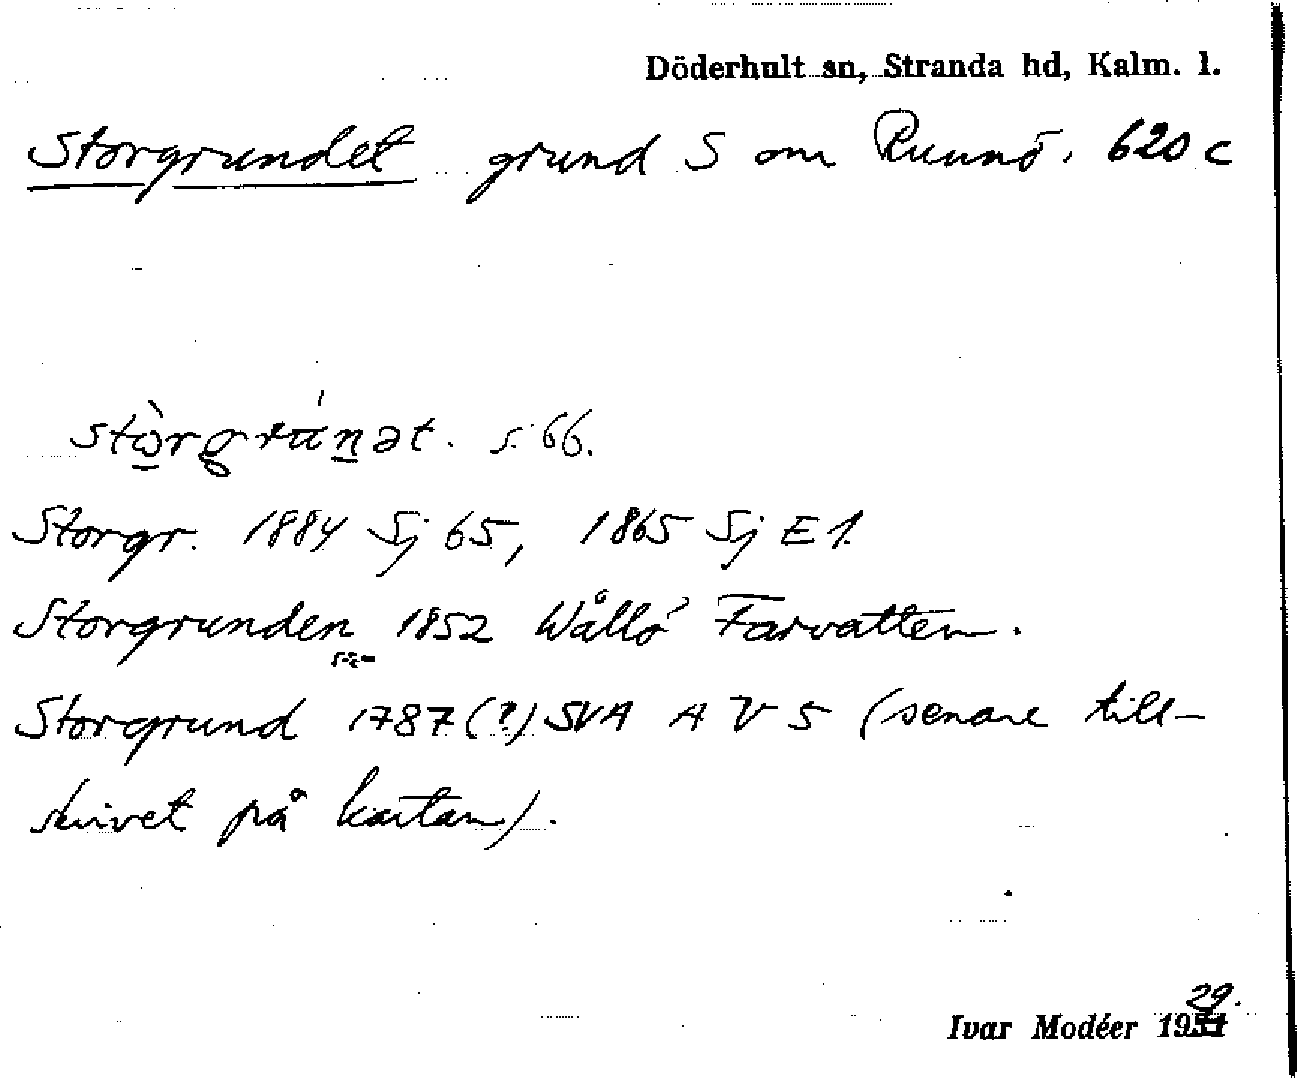 Döderhult sn, Stranda hd, Kalm. l.
Storgrundet grund S om Runnö. 620 c
stòrgrúnət. s. 66.
Storgr. 1884 Sj 65, 1865 Sj E 1.
Storgrunden 1852 Wållö Farvatten.
Storgrund 1787 (?) SVA A V 5 (senare till-
skrivet på kartan).
29.
Ivar Modéer 1951